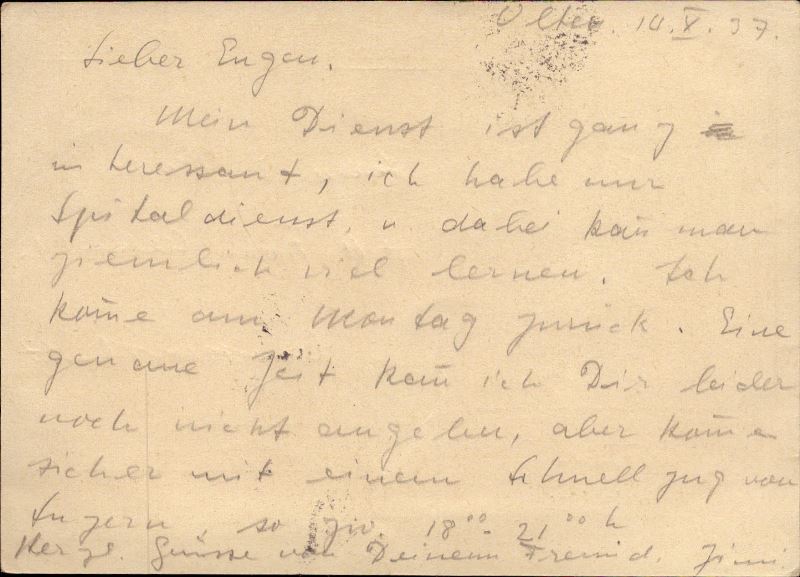 Olten. 10.X.37.
Lieber Eugen.
Mein Dienst ist ganz
interessant, ich habe nur
Spitaldienst, u. dabei kan̄ man
ziemlich viel lernen. Ich
kom̄e am Montag zurück. Eine
genaue Zeit kan̄ ich Dir leider
noch nicht angeben, aber kom̄e
sicher mit einem Schnellzug von
Luzern, so 18⁰⁰-21⁰⁰ h
Herzl. Grüsse von Deinem Freund.